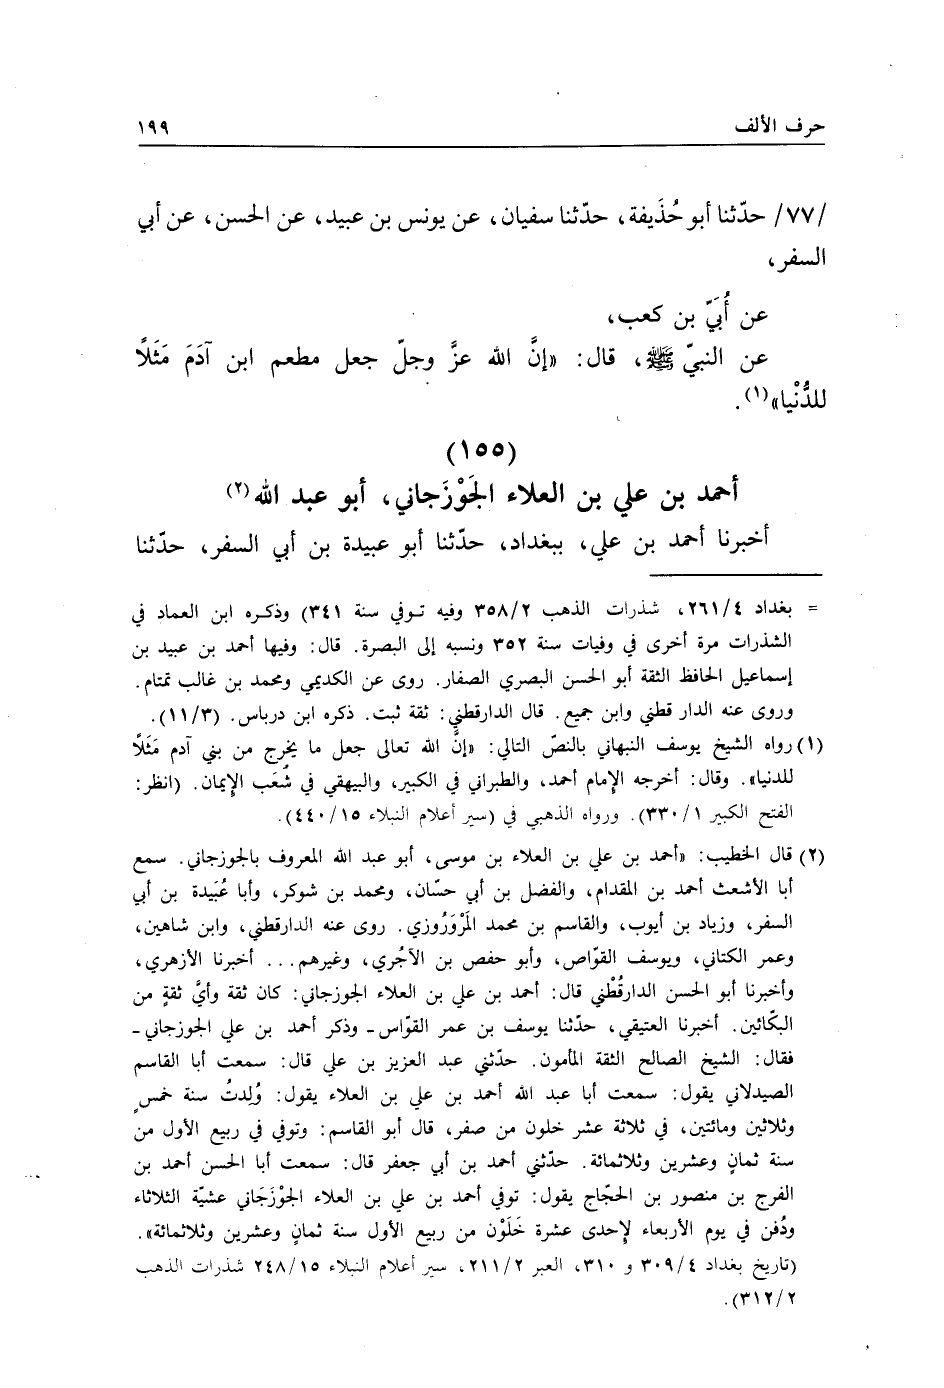 حرف الألف ١٩٩
/٧٧/ حدّثنا أبو حُذَيفة، حدّثنا سفيان، عن يونس بن عبيد، عن الحسن، عن أبي
السفر،
عن أُبَيّ بن كعب،
عن النبيّ ﷺ، قال: «إنَّ الله عزَّ وجلّ جعل مطعم ابن آدَمَ مَثَلًا
للدُّنْيا»(١).
(١٥٥)
أحمد بن علي بن العلاء الجَوْزَجاني، أبو عبد الله(٢)
أخبرنا أحمد بن علي، ببغداد، حدّثنا أبو عبيدة بن أبي السفر، حدّثنا
= بغداد ٢٦١/٤، شذرات الذهب ٣٥٨/٢ وفيه توفي سنة ٣٤١) وذكره ابن العماد في
الشذرات مرة أخرى في وفيات سنة ٣٥٢ ونسبه إلى البصرة. قال: وفيها أحمد بن عبيد بن
إسماعيل الحافظ الثقة أبو الحسن البصري الصفار. روى عن الكديمي ومحمد بن غالب تمتام.
وروى عنه الدار قطني وابن جميع. قال الدارقطني: ثقة ثبت. ذكره ابن درباس. (١١/٣).
(١) رواه الشيخ يوسف النبهاني بالنصّ التالي: «إنَّ الله تعالى جعل ما يخرج من بني آدم مَثَلًا
للدنيا». وقال: أخرجه الإمام أحمد، والطبراني في الكبير، والبيهقي في شُعَب الإيمان. (انظر:
الفتح الكبير ٣٣٠/١). ورواه الذهبي في (سير أعلام النبلاء ٤٤٠/١٥).
(٢) قال الخطيب: «أحمد بن علي بن العلاء بن موسى، أبو عبد الله المعروف بالجوزجاني. سمع
أبا الأشعث أحمد بن المقدام، والفضل بن أبي حسّان، ومحمد بن شوكر، وأبا عُبَيدة بن أبي
السفر، وزياد بن أيوب، والقاسم بن محمد المَرْوَرُوزي. روى عنه الدارقطني، وابن شاهين،
وعمر الكتاني، ويوسف القوّاص، وأبو حفص بن الآجُري، وغيرهم... أخبرنا الأزهري،
وأخبرنا أبو الحسن الدارقُطْني قال: أحمد بن علي بن العلاء الجوزجاني: كان ثقة وأيَّ ثقةٍ من
البكّائين. أخبرنا العتيقي، حدّثنا يوسف بن عمر القوّاس ـ وذكر أحمد بن علي الجوزجاني ـ
فقال: الشيخ الصالح الثقة المأمون. حدّثني عبد العزيز بن علي قال: سمعت أبا القاسم
الصيدلاني يقول: سمعت أبا عبد الله أحمد بن علي بن العلاء يقول: وُلِدتُ سنة خمسٍ
وثلاثين ومائتين، في ثلاثة عشر خلون من صفر، قال أبو القاسم: وتوفي في ربيع الأول من
سنة ثمانٍ وعشرين وثلاثمائة. حدّثني أحمد بن أبي جعفر قال: سمعت أبا الحسن أحمد بن
الفرج بن منصور بن الحجّاج يقول: توفي أحمد بن علي بن العلاء الجَوْزَجَاني عشيّة الثلاثاء
ودُفن في يوم الأربعاء لإحدى عشرة خَلَوْن من ربيع الأول سنة ثمانٍ وعشرين وثلاثمائة».
(تاريخ بغداد ٣٠٩/٤ و ٣١٠، العبر ٢١١/٢، سير أعلام النبلاء ٢٤٨/١٥ شذرات الذهب
٣١٢/٢).